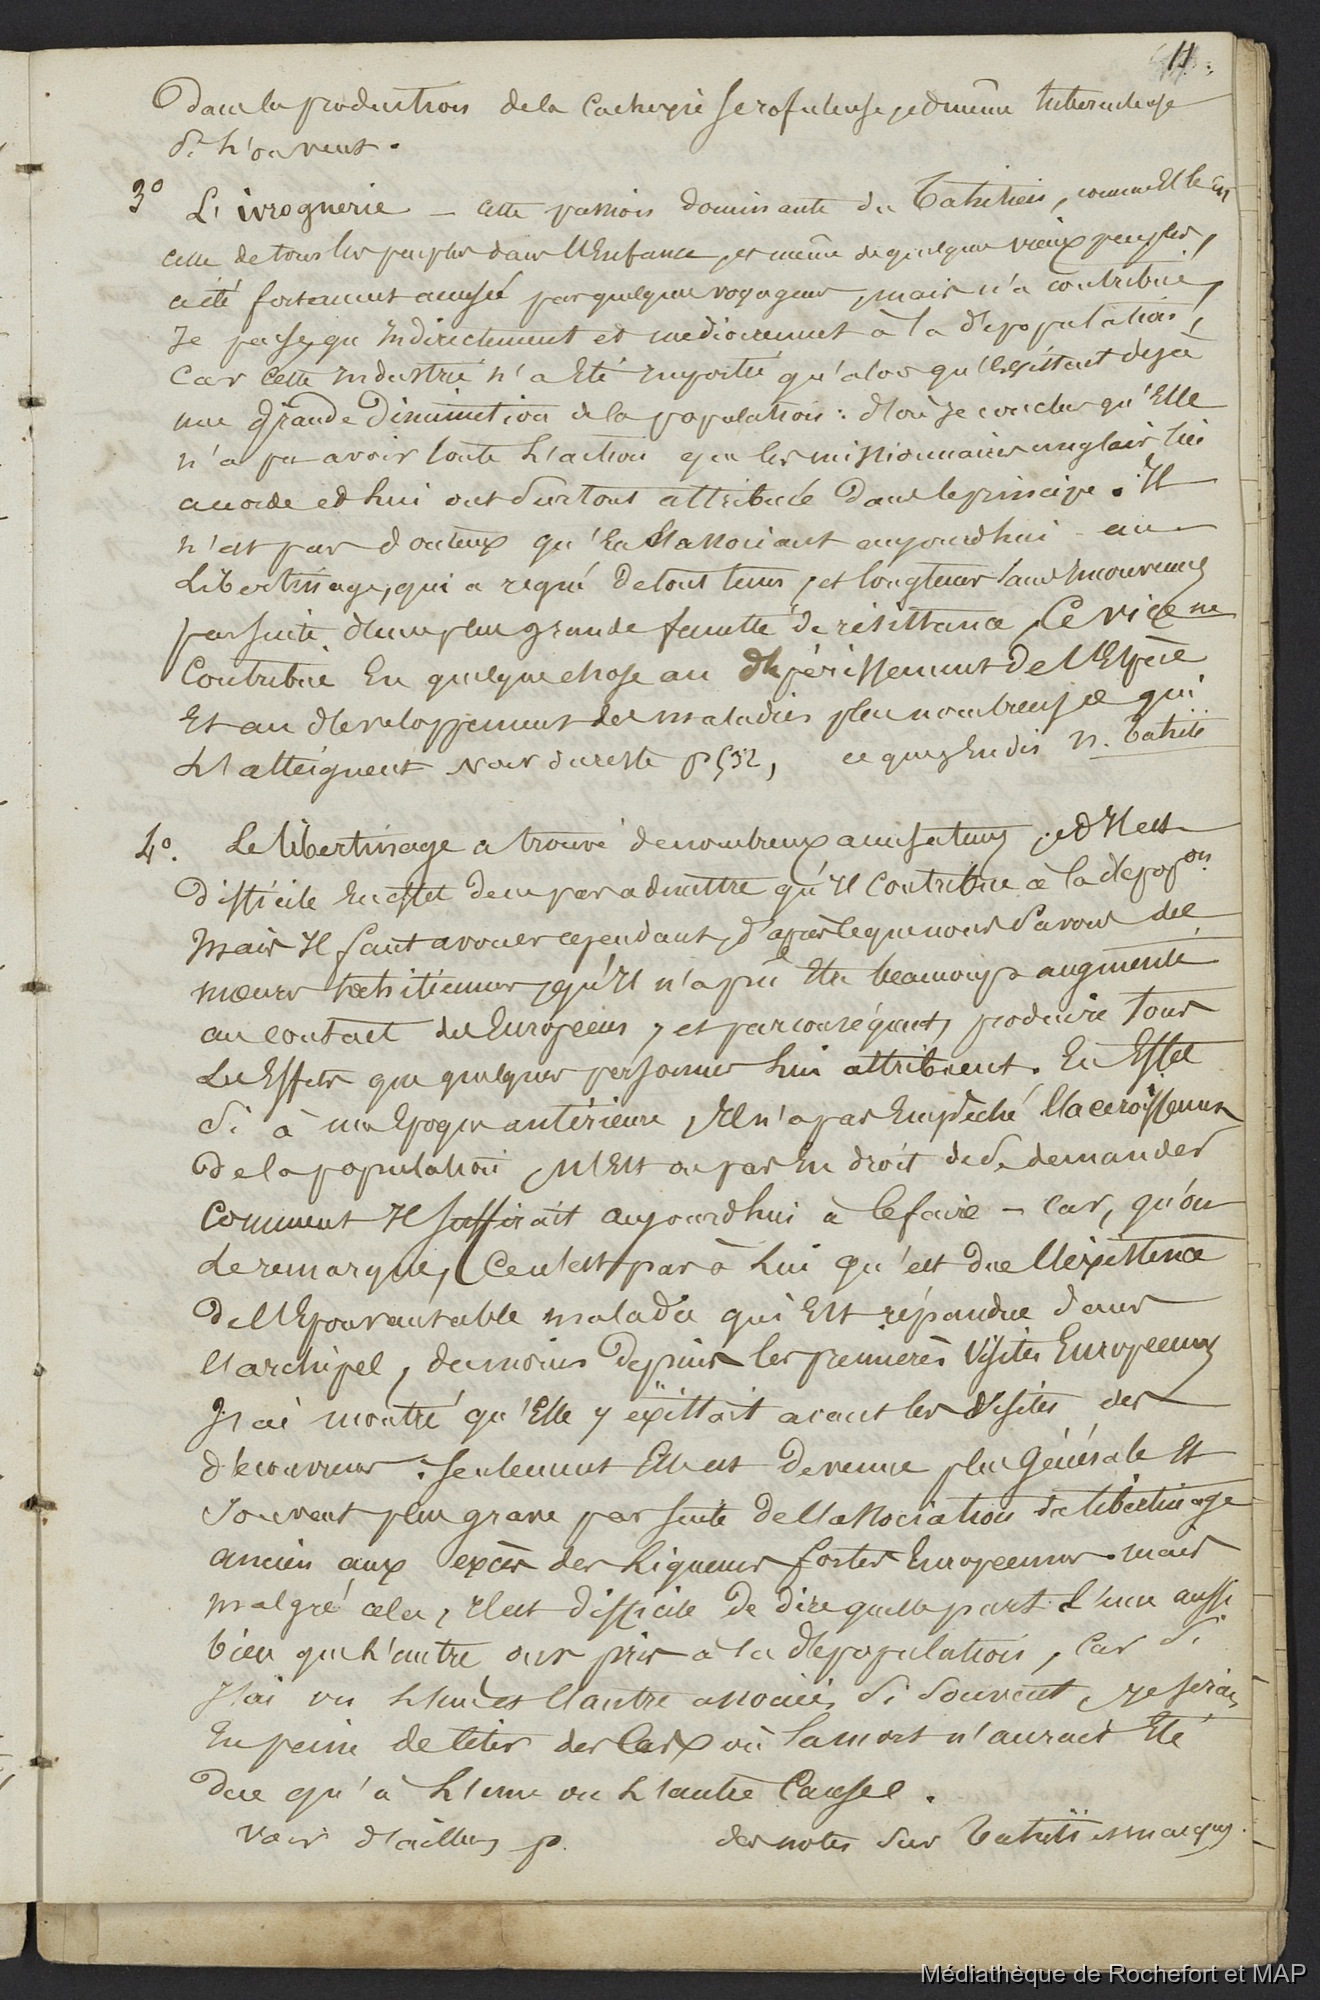 11.
Dans la production de la Cachexie scrofuleuse, et même tuberculeuse
si souvent.
3° L'ivrognerie – cette passion dominante du Tahitien, comme Elle Est
celle de tous les peuples dans l'Enfance, et même de quelques vieux peuples,
a été fortement accusée par quelques voyageurs, mais n'a contribué,
Je pense, qu'indirectement et médiocrement à la dépopulation,
Car cette industrie n'a Eté importée qu'alors qu'Existait déjà
une Grande Diminution de la population : d'où Je conclus qu'Elle
n'a pu avoir toute l'action que les missionnaires anglais lui
accorde et lui ont surtout attribuée Dans le principe. Il
n'est pas douteux qu'En s'associant aujourd'hui au
Libertinage, qui a regné De tout tems, et longtems sans
par suite d'une plus grande faculté de résistance, Ce vice ne
Contribue En quelque chose au dépérissement De l'Espèce
Et au développement des maladies plus nombreuses qui
L'atteignent Voir du reste p 532, ce que j'En dis N. Tahiti
4°. Le libertinage a trouvé de nombreux accusateurs, et Il est
Difficile En effet de ne pas admettre qu'Il Contribue à la dépop.on
Mais Il faut avouer cependant, d'après ce que nous savons des
moeurs tahitiennes, qu'Il n'a pu Etre beaucoup augmenté
au contact des Européens, et par conséquent, produire tous
Les Effets que quelques personnes lui attribuent. En Effet
si à une Epoque antérieure, Il n'a pas Empêché l'accroissement
De la population, n'Est on pas En droit de se demander
Comment Il suffirait aujourd'hui à le faire – Car, qu'on
Le remarque, Ce n'est pas à lui qu'est due l'existence
De l'Epouvantable maladie qui Est répandue dans
l'archipel, du moins Depuis les premières Visites Européennes
J'ai montré qu'Elle y existait avant les Visites des
découvreurs : seulement Elle est Devenue plus Générale Et
souvent plus grave par suite De l'association du libertinage
ancien aux excès des Liqueurs fortes Européennes. mais
malgré cela, Il est difficile De dire quelle part l'une aussi
bien que l'autre ont pris à la dépopulation, Car si
J'ai vu L'une et l'autre associées si souvent, je serais
En peine de citer des Cas où la mort n'aurait Eté
Due qu'à L'une ou L'autre Cause.
Voir d'ailleurs p. des notes sur Tahiti
Médiathèque de Rochefort et MAP